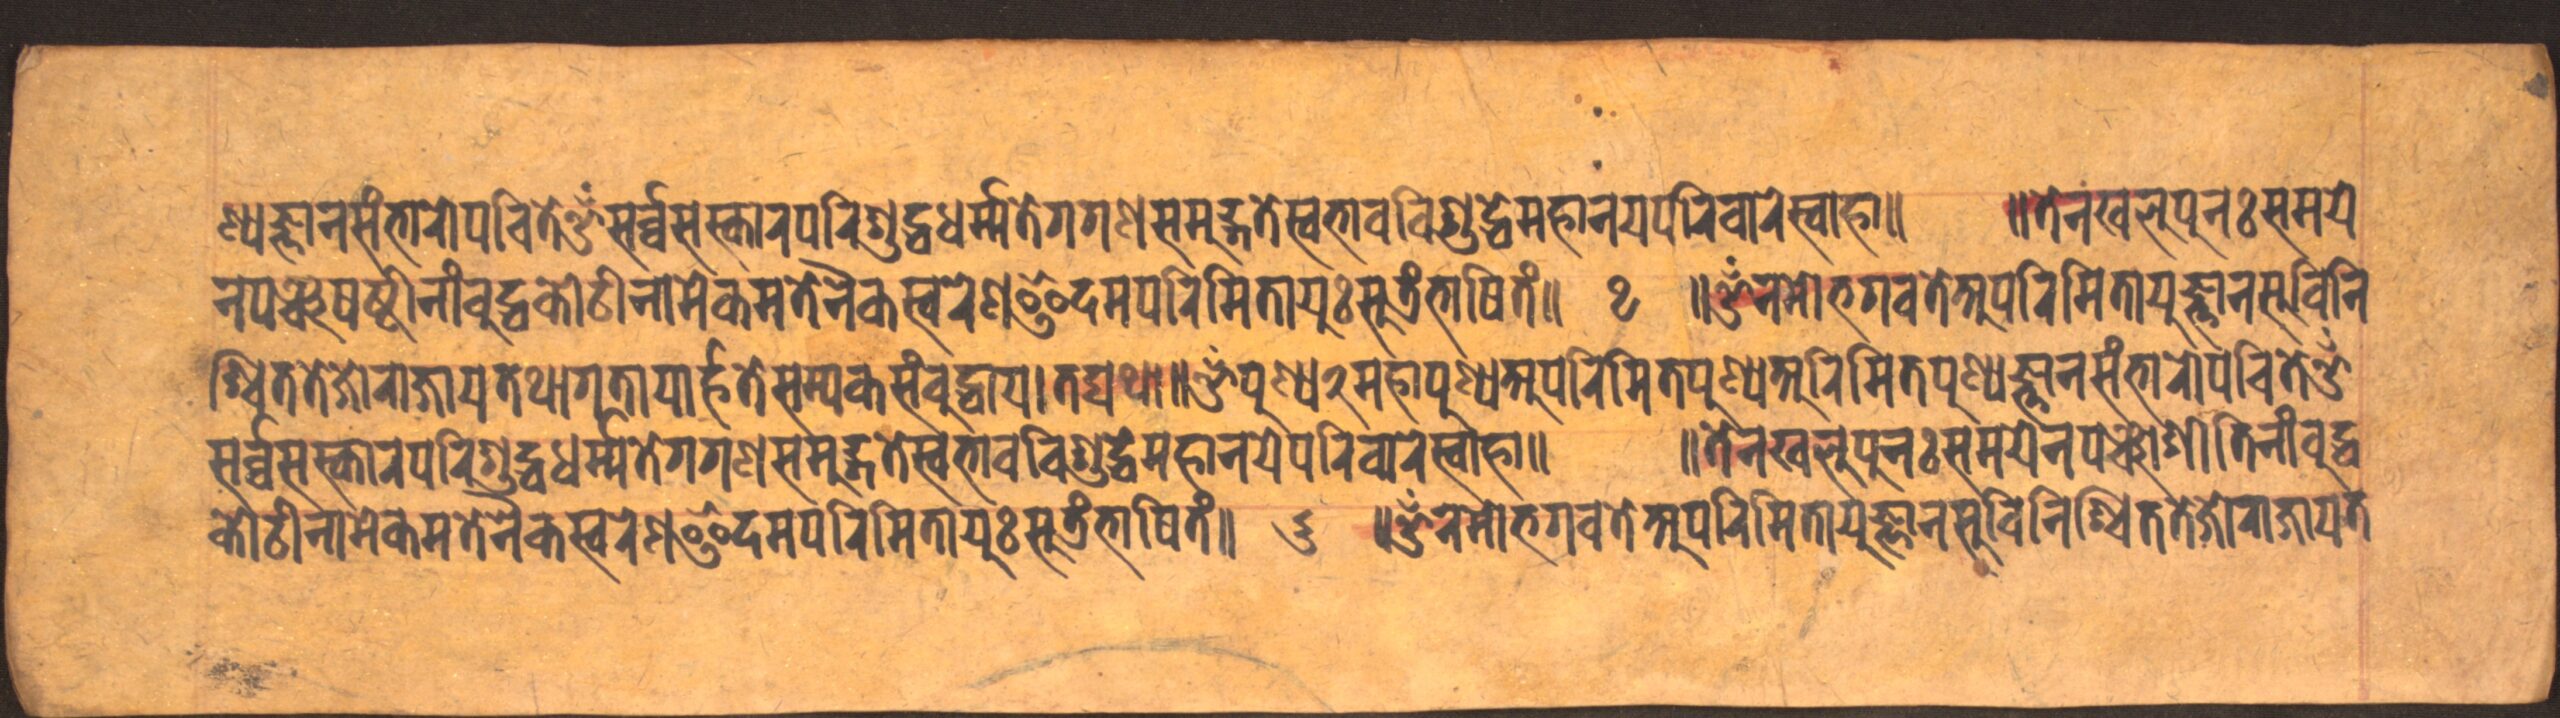 ण्यज्ञानसंभारोपचितेॐसर्व्वसस्कारपरिशुद्धधर्म्मतेगगणसमुद्गतेस्वभावविशुद्धेमहानयपरिवारेस्वाहा॥ ॥तेनखलुपुनःसमये
नपञ्चषष्टीनांबुद्धकोटीनामेकमतेनैकस्वरेणइदमपरिमितायुःसूत्रंभाषितं॥ ॥ॐनमोभगवतेअपरिमितायुज्ञानसुविनि
श्चिततेजोराजायतथागतायार्हतेसम्यकसंबुद्धाय।तद्यथा॥ॐपुण्य२महापुण्यअपरिमितपुण्यअरिमितपुण्यज्ञानसंभारोपचितेॐ
सर्व्वसस्कारपरिशुद्धधर्म्मतेगगणसमुद्गतेस्वभावविशुद्धेमहानयेपरिवारेस्वाहा॥ ॥तेनखलुपुनःसमयेनपञ्चाशीतिनांबुद्ध
कोटीनामेकमतेनैकस्वरेणइदमपरिमितायुःसूत्रंभाषितं॥ ॥ॐनमोभगवतेअपरिमितायुज्ञानसुविनिश्चिततेजोराजायत